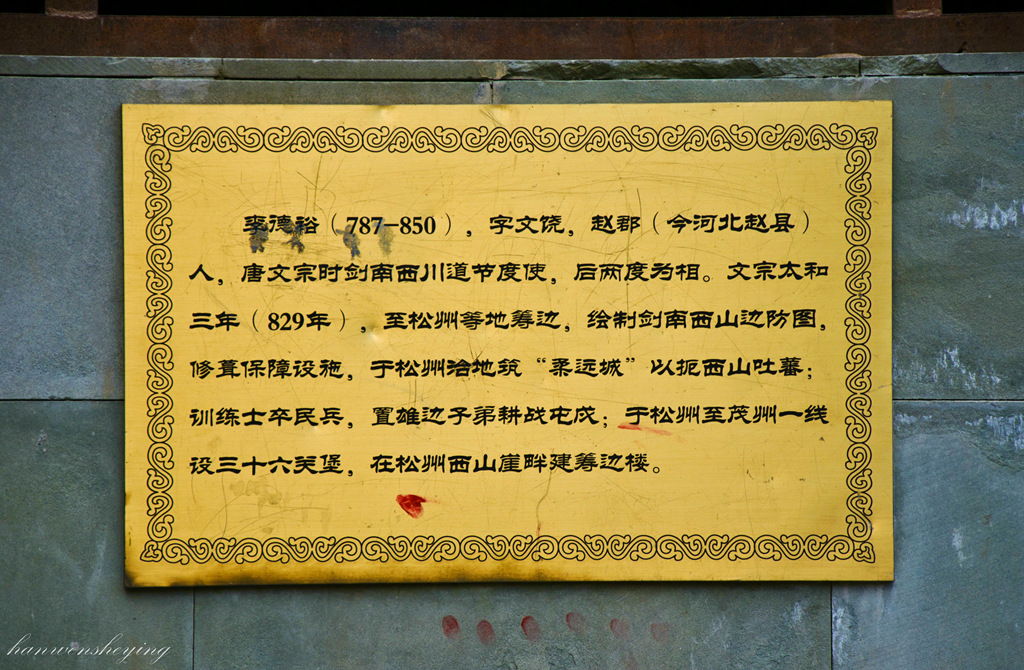 李德裕（787-850），字文饶，赵郡（今河北赵县）
人，唐文宗时剑南西川道节度使，后两度为相。文宗太和
三年（829年），至松州等地筹边，绘制剑南西山边防图，
修葺保障设施，于松州治地筑“柔远城”以扼西山吐蕃；
训练士卒民兵，置雄边子弟耕战屯戍；于松州至茂州一线
设三十六关堡，在松州西山崖畔建筹边楼。
hanwensheying